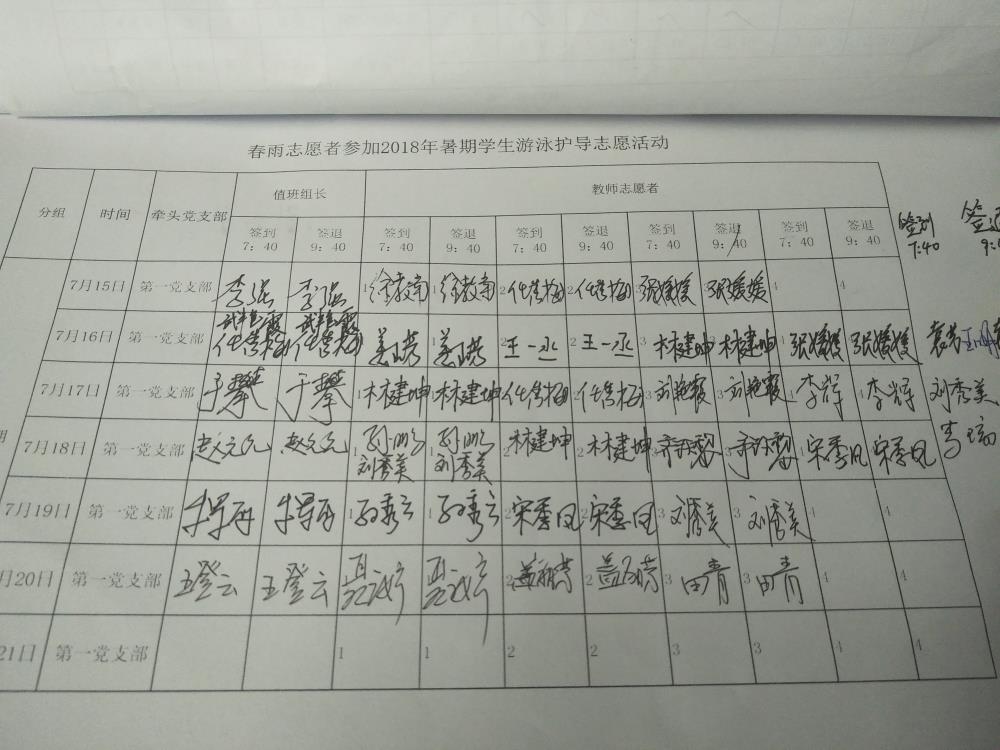 春雨志愿者参加2018年暑期学生游泳护导志愿活动
分组 时间 牵头党支部 值班组长 教师志愿者
签到 签退 签到 签退 签到 签退 签到 签退 签到 签退 签到 签退
7:40 9:40 7:40 9:40 7:40 9:40 7:40 9:40 7:40 9:40 7:40
7月15日 第一党支部 李强 李强 1 徐教南 1 徐教南 2 2 3 张媛媛 3 张媛媛 4 4
7月16日 第一党支部 1 1 2 王一丞 2 王一丞 3 林建坤 3 林建坤 张媛媛 张媛媛
7月17日 第一党支部 于攀 于攀 1 林建坤 1 林建坤 2 2 3 刘艳霞 3 刘艳霞 李辉 李辉 刘秀美
7月18日 第一党支部 赵文元 赵文元 孙鹏 孙鹏 2 林建坤 2 林建坤 3 3 宋季凤 宋季凤 李瑞
刘秀美 刘秀美
7月19日 第一党支部 1 孙秀云 1 孙秀云 2 宋季凤 2 宋季凤 3 刘秀美 3 刘秀美 4 4
月20日 第一党支部 王登云 王登云 1 2 2 3 田青 3 田青 4 4
21日 第一党支部 1 1 2 2 3 3 4 4